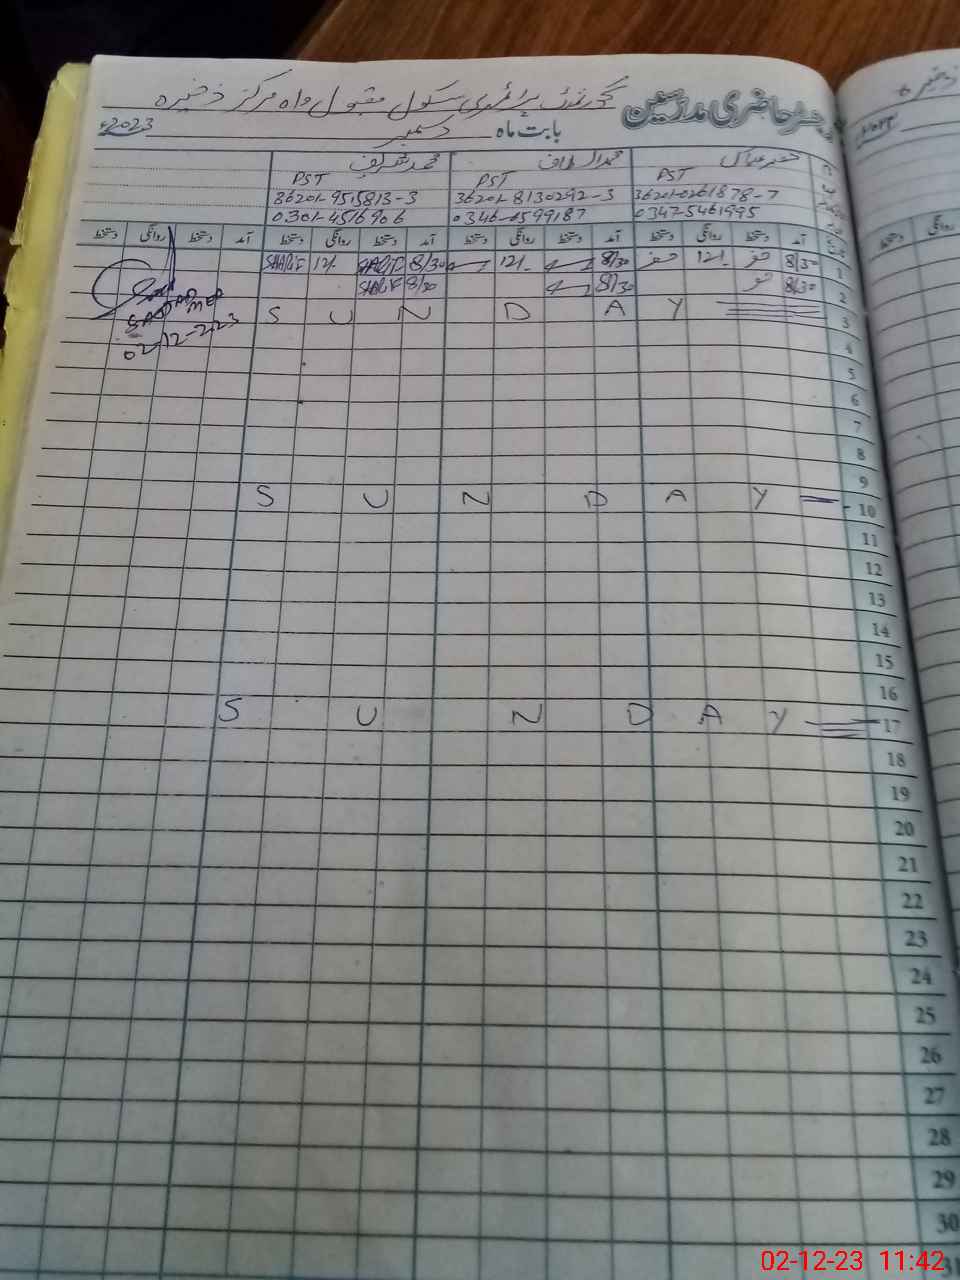 رجسٹر حاضری مدرسین گورنمنٹ پرائمری سکول مقبول واہ مرکز ذخیرہ
بابت ماہ دسمبر 2023ء
محمد الطاف محمد شریف
PST PST PST
36201-0261878-7 36201-8130292-3 36201-9515813-3
0347-5461995 0346-6599187 0301-4516906
آمد دستخط روانگی دستخط آمد دستخط روانگی دستخط آمد دستخط روانگی دستخط آمد دستخط روانگی دستخط
1 8/30 12/- 8/30 12/- 8/30 SHARIF 12/- SHARIF
2 8/30 8/30 8/30 SHARIF
02-12-2023
3 SUNDAY
4
5
6
7
8
9
10 SUNDAY
11
12
13
14
15
16
17 SUNDAY
18
19
20
21
22
23
24
25
26
27
28
29
30
31
02-12-23 11:42